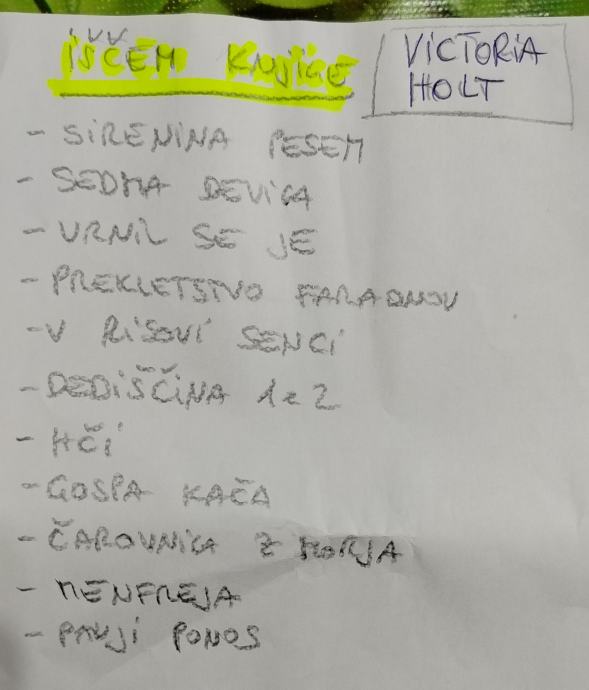 iŠČEM KNJiGE
VICTORIA
HOLT
- SiRENINA PESEM
- SEDMA DEVICA
- VRNIL SE JE
- PREKLETSTVO FARAONOV
- V RiSOVi SENCi
- DEDiŠČiNA 1 2
- HČi
- GOSPA KAČA
- ČAROVNiCA Z MORJA
- MENFREJA
- PAVJi PONOS